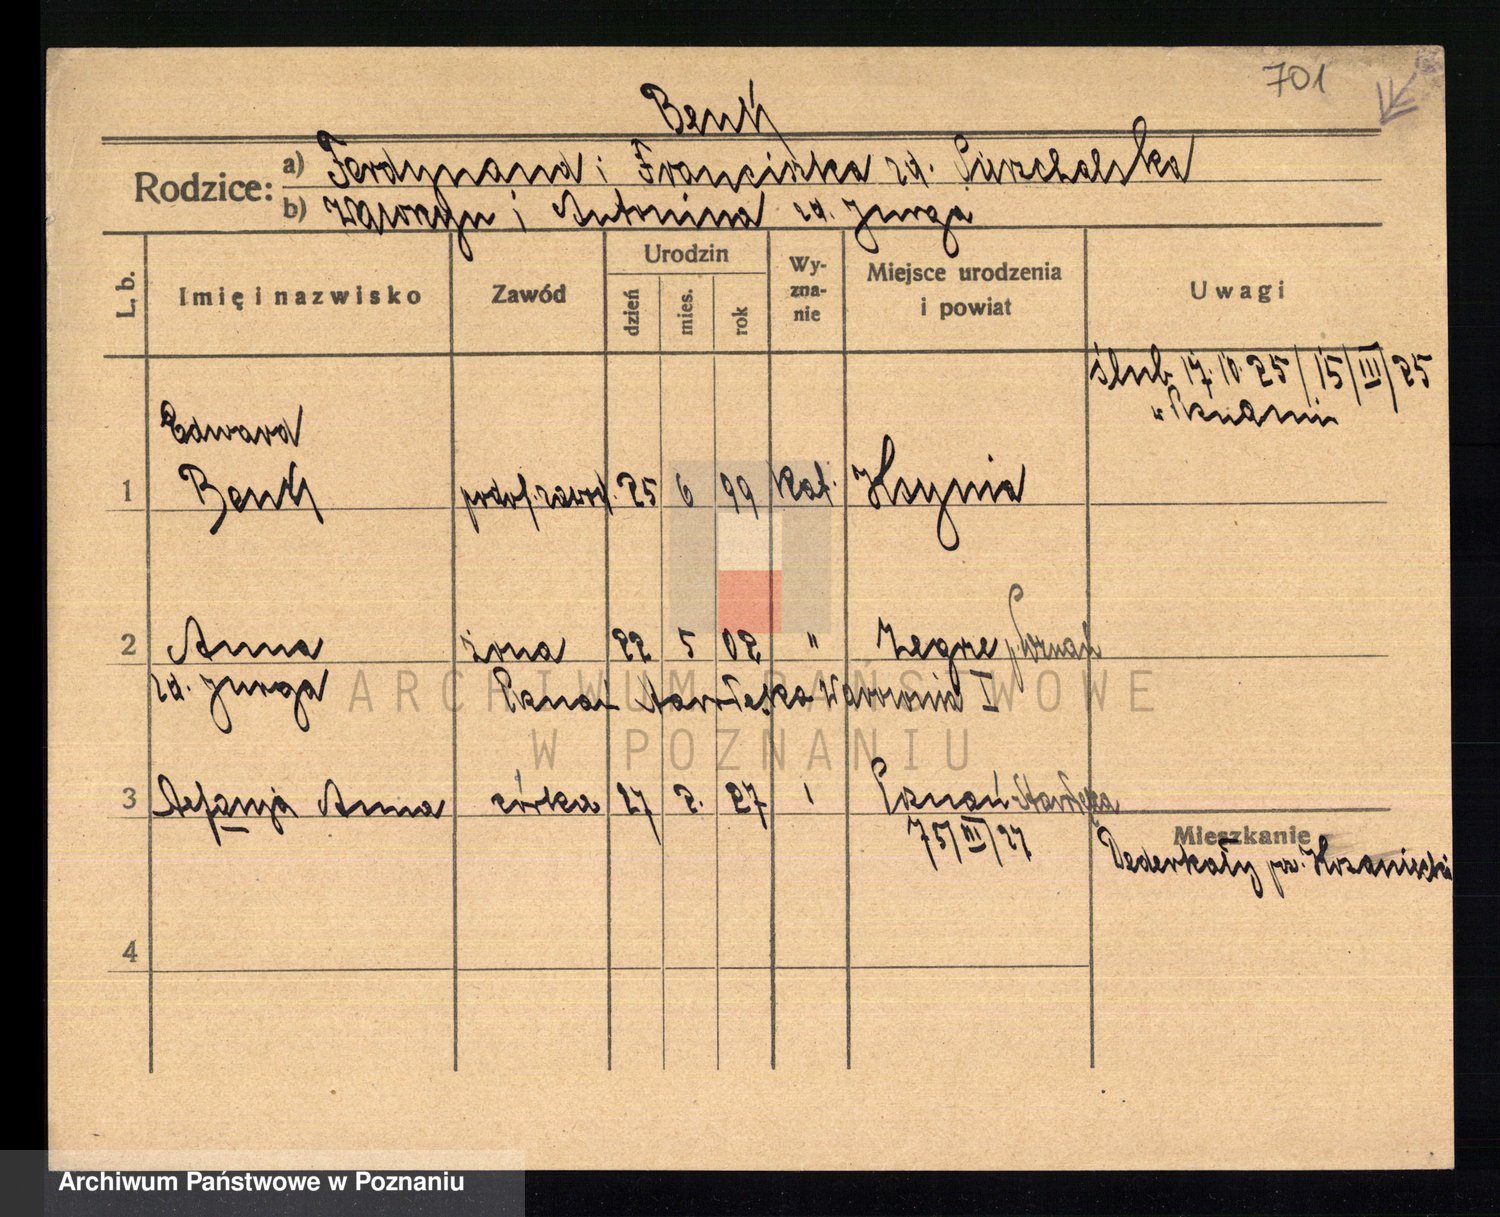 701
Rodzice:
a) Ferdynand i Franciszka zd.
b) Wawrzyn i Antonina zd. Jurga
L. b.
Imię i nazwisko
Zawód
Urodzin
dzień
mies.
rok
Wy-
zna-
nie
Miejsce urodzenia
i powiat
Uwagi
ślub 17.10.25/15/III/25
w Poznaniu
Edward
1 25 6 99 kat. Kcynia
2 Anna żona 22 5 02 " Żegrze p. Poznań
zd. Jurga Poznań Starołęka I
3 Stefanja Anna córka 27 2. 27 Poznań-Starołęka
75/III/27
Mieszkanie
Dederkały
4
ARCHIWUM PAŃSTWOWE
W POZNANIU
Archiwum Państwowe w Poznaniu